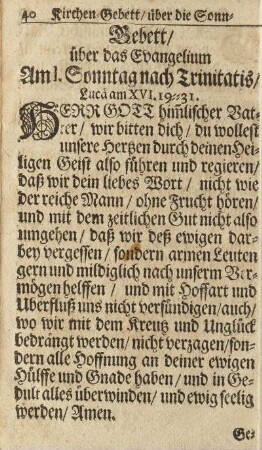 40 Kirchen-Gebett/ über die Sonn-
Gebett/
über das Evangelium
Am I. Sonntag nach Trinitatis/
Lucä am XVI. 19-31.
HERR GOTT him̃lischer Vat-
ter/ wir bitten dich/ du wollest
unsere Hertzen durch deinen Hei-
ligen Geist also führen und regieren/
daß wir dein liebes Wort/ nicht wie
der reiche Mann/ ohne Frucht hören/
und mit dem zeitlichen Gut nicht also
umgehen/ daß wir deß ewigen dar-
bey vergessen/ sondern armen Leuten
gern und mildiglich nach unserm Ver-
mögen helffen/ und mit Hoffart und
Uberfluß uns nicht versündigen/auch/
wo wir mit dem Kreutz und Unglück
bedrängt werden/ nicht verzagen/son-
dern alle Hoffnung an deiner ewigen
Hülffe und Gnade haben/ und in Ge-
dult alles überwinden/ und ewig seelig
werden/ Amen.
Ge-